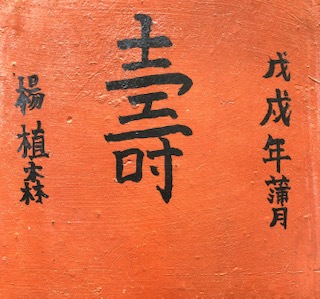 戊戌年蒲月
壽
楊植森